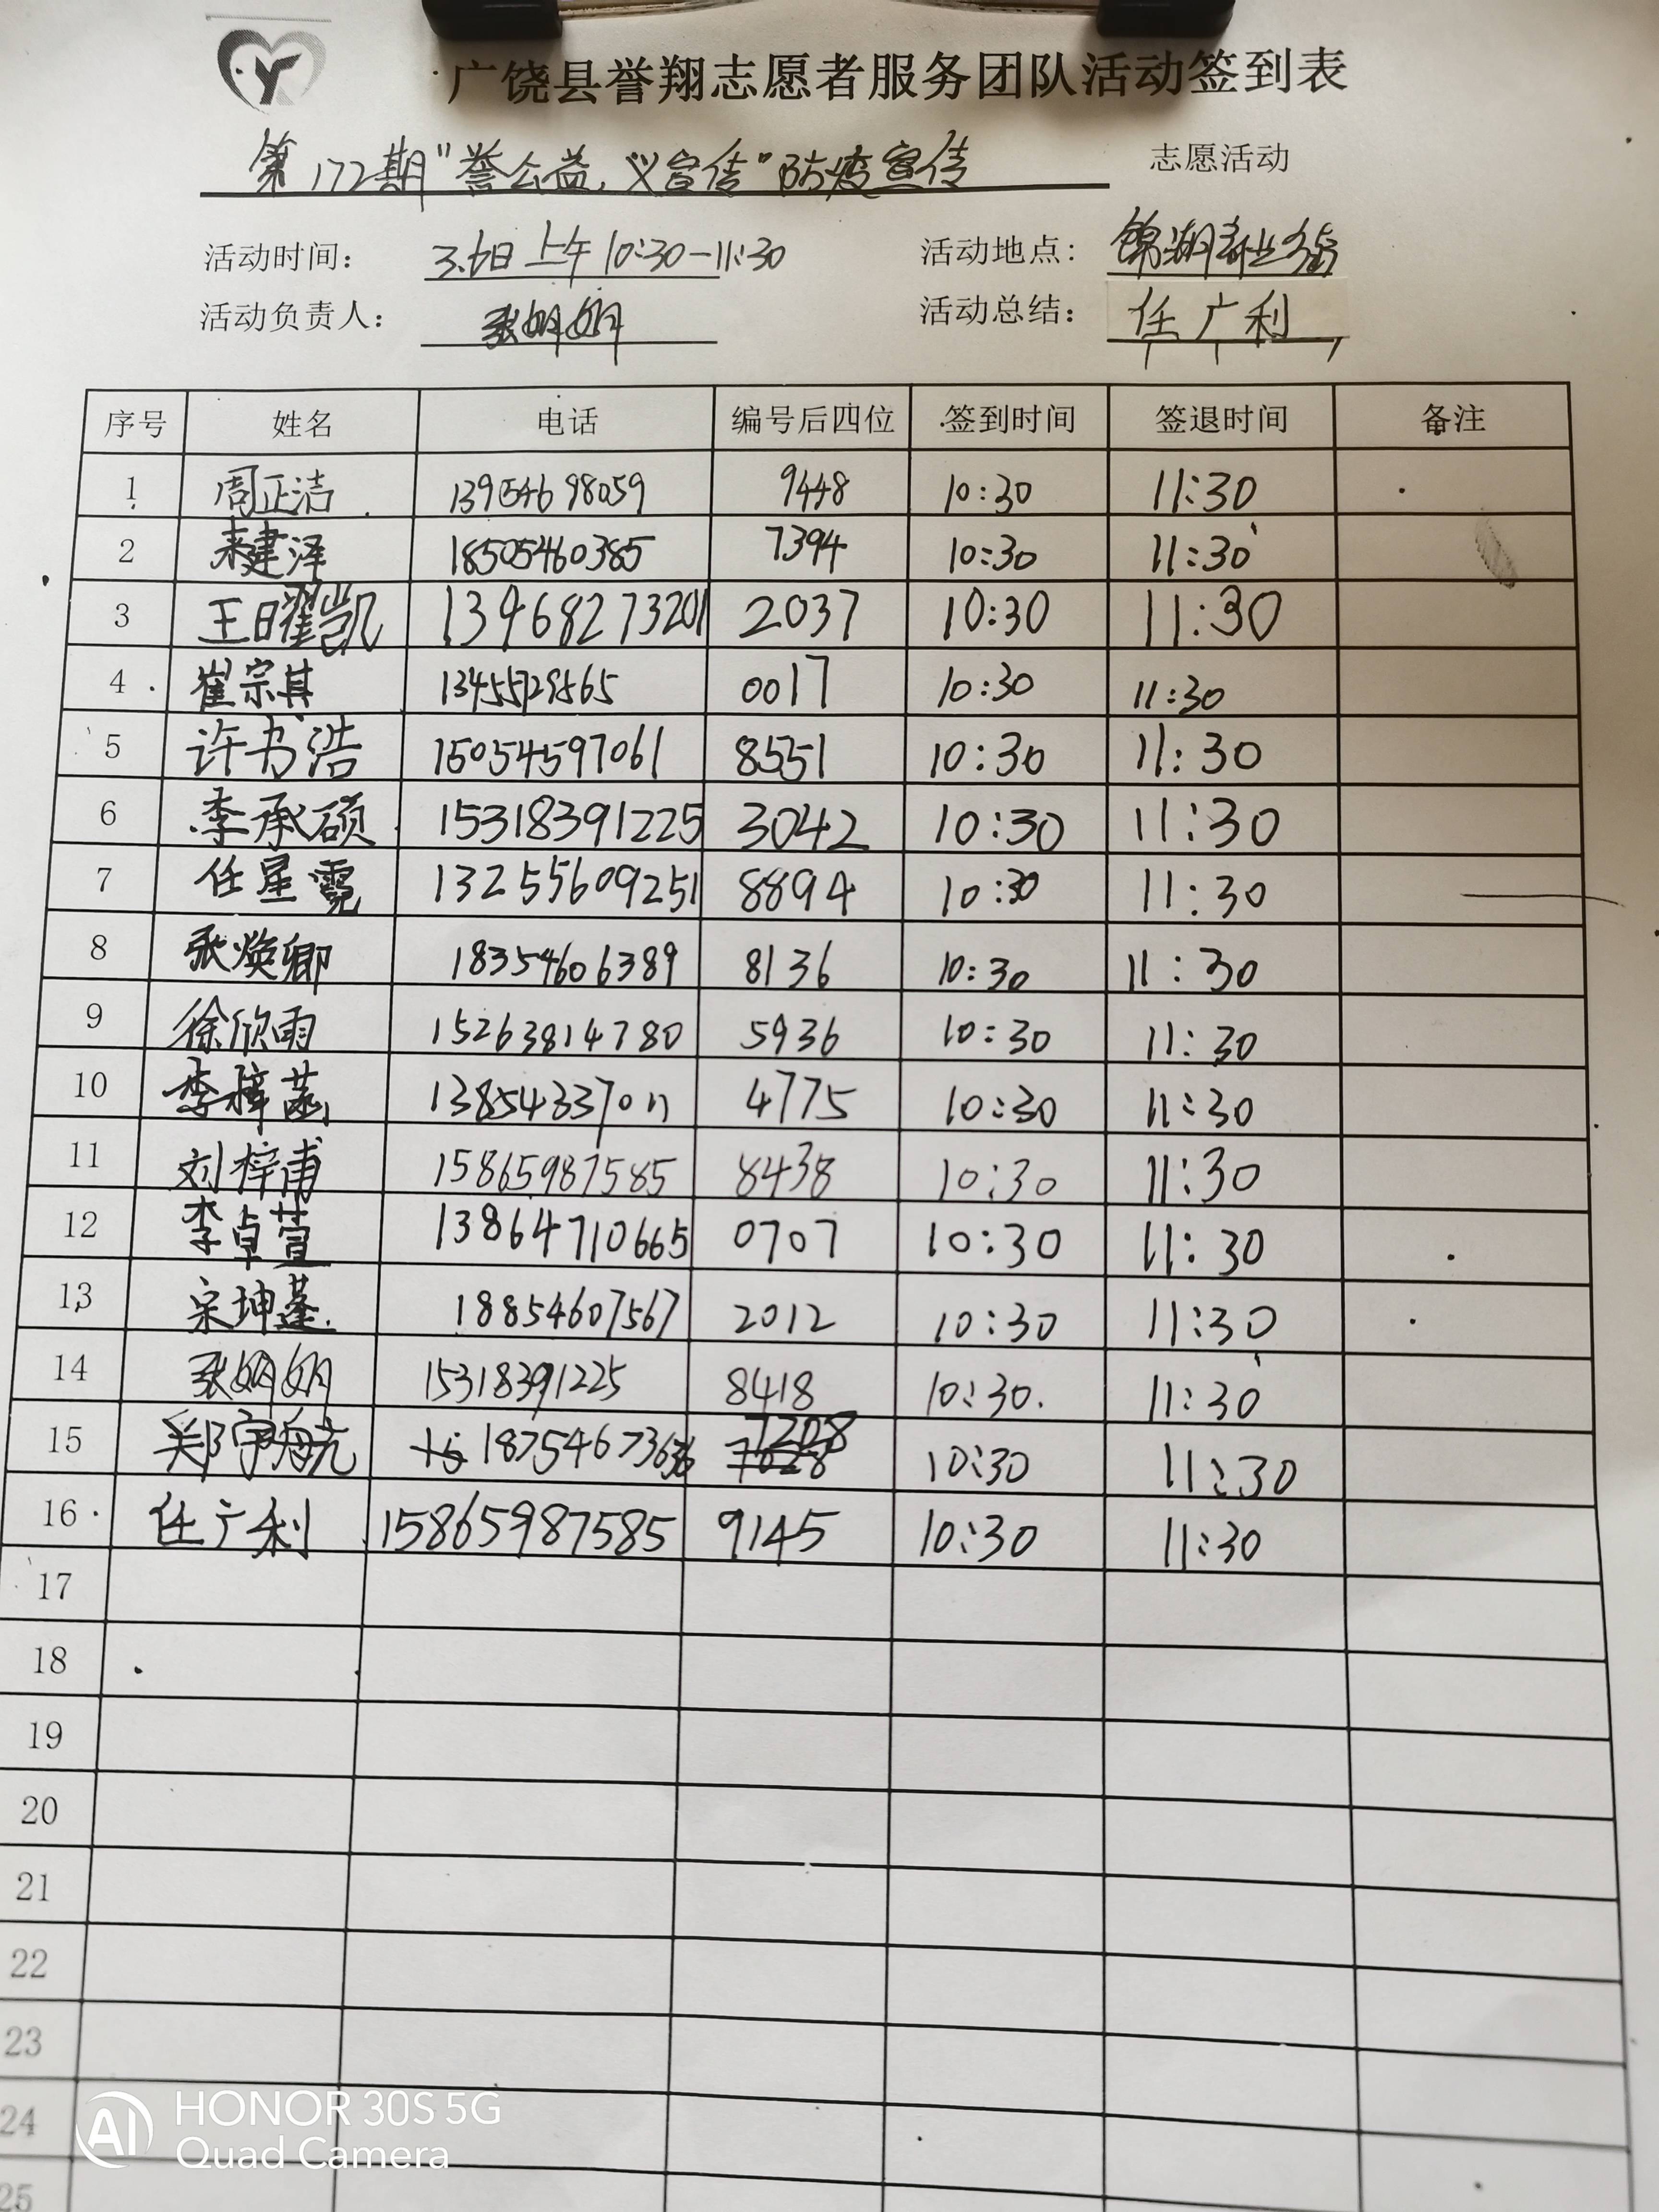 广饶县誉翔志愿者服务团队活动签到表
第172期"誉公益,义宣传"防疫宣传 志愿活动
活动时间: 3.6日上午10:30-11:30 活动地点: 锦翔
活动负责人: 张娟娟 活动总结: 任广利
序号 姓名 电话 编号后四位 签到时间 签退时间 备注
1 周正洁 13954698059 9448 10:30 11:30
2 来建泽 18505460385 7394 10:30 11:30
3 王日翟凯 13468273201 2037 10:30 11:30
4 崔宗其 0017 10:30 11:30
5 许书浩 15054597061 8551 10:30 11:30
6 李承硕 15318391225 3042 10:30 11:30
7 任星霓 13255609251 8894 10:30 11:30
8 张焕卿 18354606389 8136 10:30 11:30
9 徐欣雨 15263814780 5936 10:30 11:30
10 李梓菡 13854337011 4775 10:30 11:30
11 刘梓甫 15865987585 8438 10:30 11:30
12 李卓萱 13864710665 0707 10:30 11:30
13 宋坤蓬 18854607567 2012 10:30 11:30
14 张娟娟 15318391225 8418 10:30. 11:30
15 郑宇航 18754673636 7208 10:30 11:30
16 任广利 15865987585 9145 10:30 11:30
17
18
19
20
21
22
23
24
25
AI HONOR 30S 5G
Quad Camera